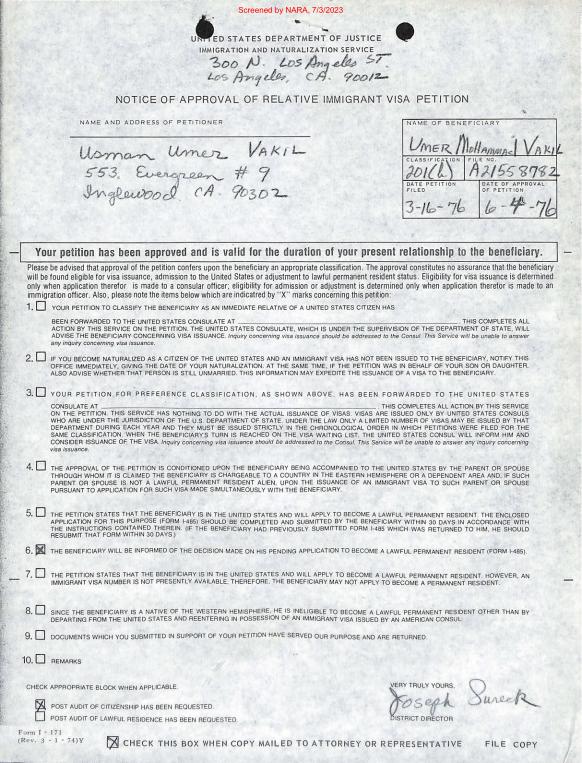 Screened by NARA, 7/3/2023
UNITED STATES DEPARTMENT OF JUSTICE
IMMIGRATION AND NATURALIZATION SERVICE
300 N. Los Angeles ST.
Los Angeles, CA. 90012
NOTICE OF APPROVAL OF RELATIVE IMMIGRANT VISA PETITION
NAME AND ADDRESS OF PETITIONER
Usman Umer VAKIL
553, Evergreen # 9
Inglewood CA. 90302
NAME OF BENEFICIARY
UMER MOHAMMAD VAKIL
CLASSIFICATION FILE NO.
201(b) A21558782
DATE PETITION FILED DATE OF APPROVAL OF PETITION
3-16-76 6-4-76
Your petition has been approved and is valid for the duration of your present relationship to the beneficiary.
Please be advised that approval of the petition confers upon the beneficiary an appropriate classification. The approval constitutes no assurance that the beneficiary
will be found eligible for visa issuance, admission to the United States or adjustment to lawful permanent resident status. Eligibility for visa issuance is determined
only when application therefor is made to a consular officer; eligibility for admission or adjustment is determined only when application therefor is made to an
immigration officer. Also, please note the items below which are indicated by "X" marks concerning this petition:
1. YOUR PETITION TO CLASSIFY THE BENEFICIARY AS AN IMMEDIATE RELATIVE OF A UNITED STATES CITIZEN HAS
BEEN FORWARDED TO THE UNITED STATES CONSULATE AT THIS COMPLETES ALL
ACTION BY THIS SERVICE ON THE PETITION. THE UNITED STATES CONSULATE, WHICH IS UNDER THE SUPERVISION OF THE DEPARTMENT OF STATE, WILL
ADVISE THE BENEFICIARY CONCERNING VISA ISSUANCE. Inquiry concerning visa issuance should be addressed to the Consul. This Service will be unable to answer
any inquiry concerning visa issuance.
2. IF YOU BECOME NATURALIZED AS A CITIZEN OF THE UNITED STATES AND AN IMMIGRANT VISA HAS NOT BEEN ISSUED TO THE BENEFICIARY, NOTIFY THIS
OFFICE IMMEDIATELY, GIVING THE DATE OF YOUR NATURALIZATION. AT THE SAME TIME, IF THE PETITION WAS IN BEHALF OF YOUR SON OR DAUGHTER,
ALSO ADVISE WHETHER THAT PERSON IS STILL UNMARRIED. THIS INFORMATION MAY EXPEDITE THE ISSUANCE OF A VISA TO THE BENEFICIARY.
3. YOUR PETITION FOR PREFERENCE CLASSIFICATION, AS SHOWN ABOVE, HAS BEEN FORWARDED TO THE UNITED STATES
CONSULATE AT . THIS COMPLETES ALL ACTION BY THIS SERVICE
ON THE PETITION. THIS SERVICE HAS NOTHING TO DO WITH THE ACTUAL ISSUANCE OF VISAS. VISAS ARE ISSUED ONLY BY UNITED STATES CONSULS
WHO ARE UNDER THE JURISDICTION OF THE U.S. DEPARTMENT OF STATE. UNDER THE LAW ONLY A LIMITED NUMBER OF VISAS MAY BE ISSUED BY THAT
DEPARTMENT DURING EACH YEAR AND THEY MUST BE ISSUED STRICTLY IN THE CHRONOLOGICAL ORDER IN WHICH PETITIONS WERE FILED FOR THE
SAME CLASSIFICATION. WHEN THE BENEFICIARY'S TURN IS REACHED ON THE VISA WAITING LIST, THE UNITED STATES CONSUL WILL INFORM HIM AND
CONSIDER ISSUANCE OF THE VISA. Inquiry concerning visa issuance should be addressed to the Consul. This Service will be unable to answer any inquiry concerning
visa issuance.
4. THE APPROVAL OF THE PETITION IS CONDITIONED UPON THE BENEFICIARY BEING ACCOMPANIED TO THE UNITED STATES BY THE PARENT OR SPOUSE
THROUGH WHOM IT IS CLAIMED THE BENEFICIARY IS CHARGEABLE TO A COUNTRY IN THE EASTERN HEMISPHERE OR A DEPENDENT AREA AND, IF SUCH
PARENT OR SPOUSE IS NOT A LAWFUL PERMANENT RESIDENT ALIEN, UPON THE ISSUANCE OF AN IMMIGRANT VISA TO SUCH PARENT OR SPOUSE
PURSUANT TO APPLICATION FOR SUCH VISA MADE SIMULTANEOUSLY WITH THE BENEFICIARY.
5. THE PETITION STATES THAT THE BENEFICIARY IS IN THE UNITED STATES AND WILL APPLY TO BECOME A LAWFUL PERMANENT RESIDENT. THE ENCLOSED
APPLICATION FOR THIS PURPOSE (FORM I-485) SHOULD BE COMPLETED AND SUBMITTED BY THE BENEFICIARY WITHIN 30 DAYS IN ACCORDANCE WITH
THE INSTRUCTIONS CONTAINED THEREIN. (IF THE BENEFICIARY HAD PREVIOUSLY SUBMITTED FORM I-485 WHICH WAS RETURNED TO HIM, HE SHOULD
RESUBMIT THAT FORM WITHIN 30 DAYS.)
6. THE BENEFICIARY WILL BE INFORMED OF THE DECISION MADE ON HIS PENDING APPLICATION TO BECOME A LAWFUL PERMANENT RESIDENT (FORM I-485).
7. THE PETITION STATES THAT THE BENEFICIARY IS IN THE UNITED STATES AND WILL APPLY TO BECOME A LAWFUL PERMANENT RESIDENT. HOWEVER, AN
IMMIGRANT VISA NUMBER IS NOT PRESENTLY AVAILABLE. THEREFORE, THE BENEFICIARY MAY NOT APPLY TO BECOME A PERMANENT RESIDENT.
8. SINCE THE BENEFICIARY IS A NATIVE OF THE WESTERN HEMISPHERE, HE IS INELIGIBLE TO BECOME A LAWFUL PERMANENT RESIDENT OTHER THAN BY
DEPARTING FROM THE UNITED STATES AND REENTERING IN POSSESSION OF AN IMMIGRANT VISA ISSUED BY AN AMERICAN CONSUL.
9. DOCUMENTS WHICH YOU SUBMITTED IN SUPPORT OF YOUR PETITION HAVE SERVED OUR PURPOSE AND ARE RETURNED.
10. REMARKS
CHECK APPROPRIATE BLOCK WHEN APPLICABLE.
POST AUDIT OF CITIZENSHIP HAS BEEN REQUESTED.
POST AUDIT OF LAWFUL RESIDENCE HAS BEEN REQUESTED.
VERY TRULY YOURS,
Joseph Sureck
DISTRICT DIRECTOR
Form I - 171
(Rev. 3 - 1 - 74)Y
CHECK THIS BOX WHEN COPY MAILED TO ATTORNEY OR REPRESENTATIVE FILE COPY